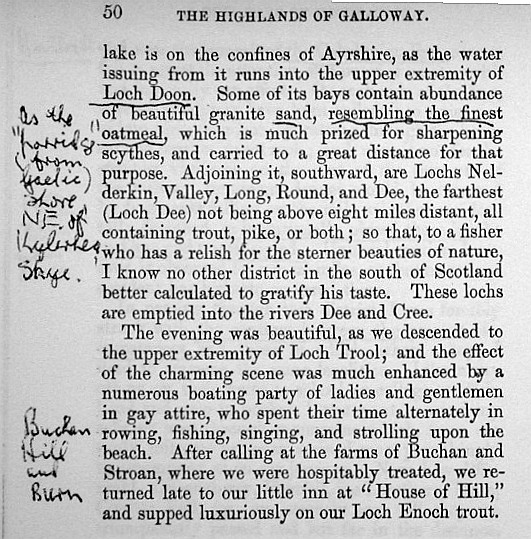 50 THE HIGHLANDS OF GALLOWAY.
lake is on the confines of Ayrshire, as the water
issuing from it runs into the upper extremity of
Loch Doon. Some of its bays contain abundance
of beautiful granite sand, resembling the finest
oatmeal, which is much prized for sharpening
scythes, and carried to a great distance for that
purpose. Adjoining it, southward, are Lochs Nel-
derkin, Valley, Long, Round, and Dee, the farthest
(Loch Dee) not being above eight miles distant, all
containing trout, pike, or both; so that, to a fisher
who has a relish for the sterner beauties of nature,
I know no other district in the south of Scotland
better calculated to gratify his taste. These lochs
are emptied into the rivers Dee and Cree.
The evening was beautiful, as we descended to
the upper extremity of Loch Trool; and the effect
of the charming scene was much enhanced by a
numerous boating party of ladies and gentlemen
in gay attire, who spent their time alternately in
rowing, fishing, singing, and strolling upon the
beach. After calling at the farms of Buchan and
Stroan, where we were hospitably treated, we re-
turned late to our little inn at "House of Hill,"
and supped luxuriously on our Loch Enoch trout.
as the
"porridge"
(from
Gaelic)
shore
NE. of
Kylerhea
Skye.
Buchan
Hill
and
Burn